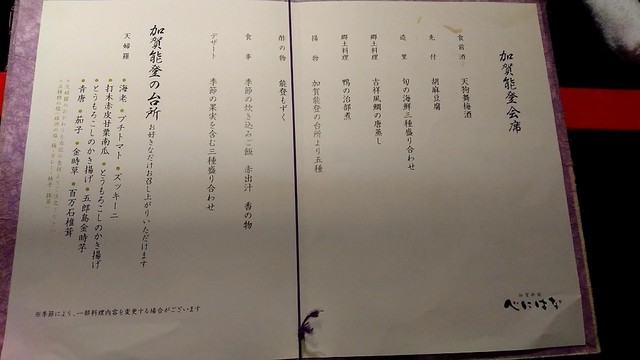 加賀能登会席
食前酒 天狗舞梅酒
先付 胡麻豆腐
造里 旬の海鮮三種盛り合わせ
郷土料理 吉祥風鯛の唐蒸し
郷土料理 鴨の治部煮
揚物 加賀能登の台所より五種
酢の物 能登もずく
食事 季節の炊き込みご飯 赤出汁 香の物
デザート 季節の果実を含む三種盛り合わせ
べにはな
加賀能登の台所 お好きなだけお召し上がりいただけます
天婦羅
・海老 ・プチトマト ・ズッキーニ
・打木赤皮甘栗南瓜 ・とうもろこしのかき揚げ
・とうもろこしのかき揚げ ・五郎島金時芋
・青唐 ・茄子 ・金時草 ・百万石椎茸
※季節により、一部料理内容を変更する場合がございます